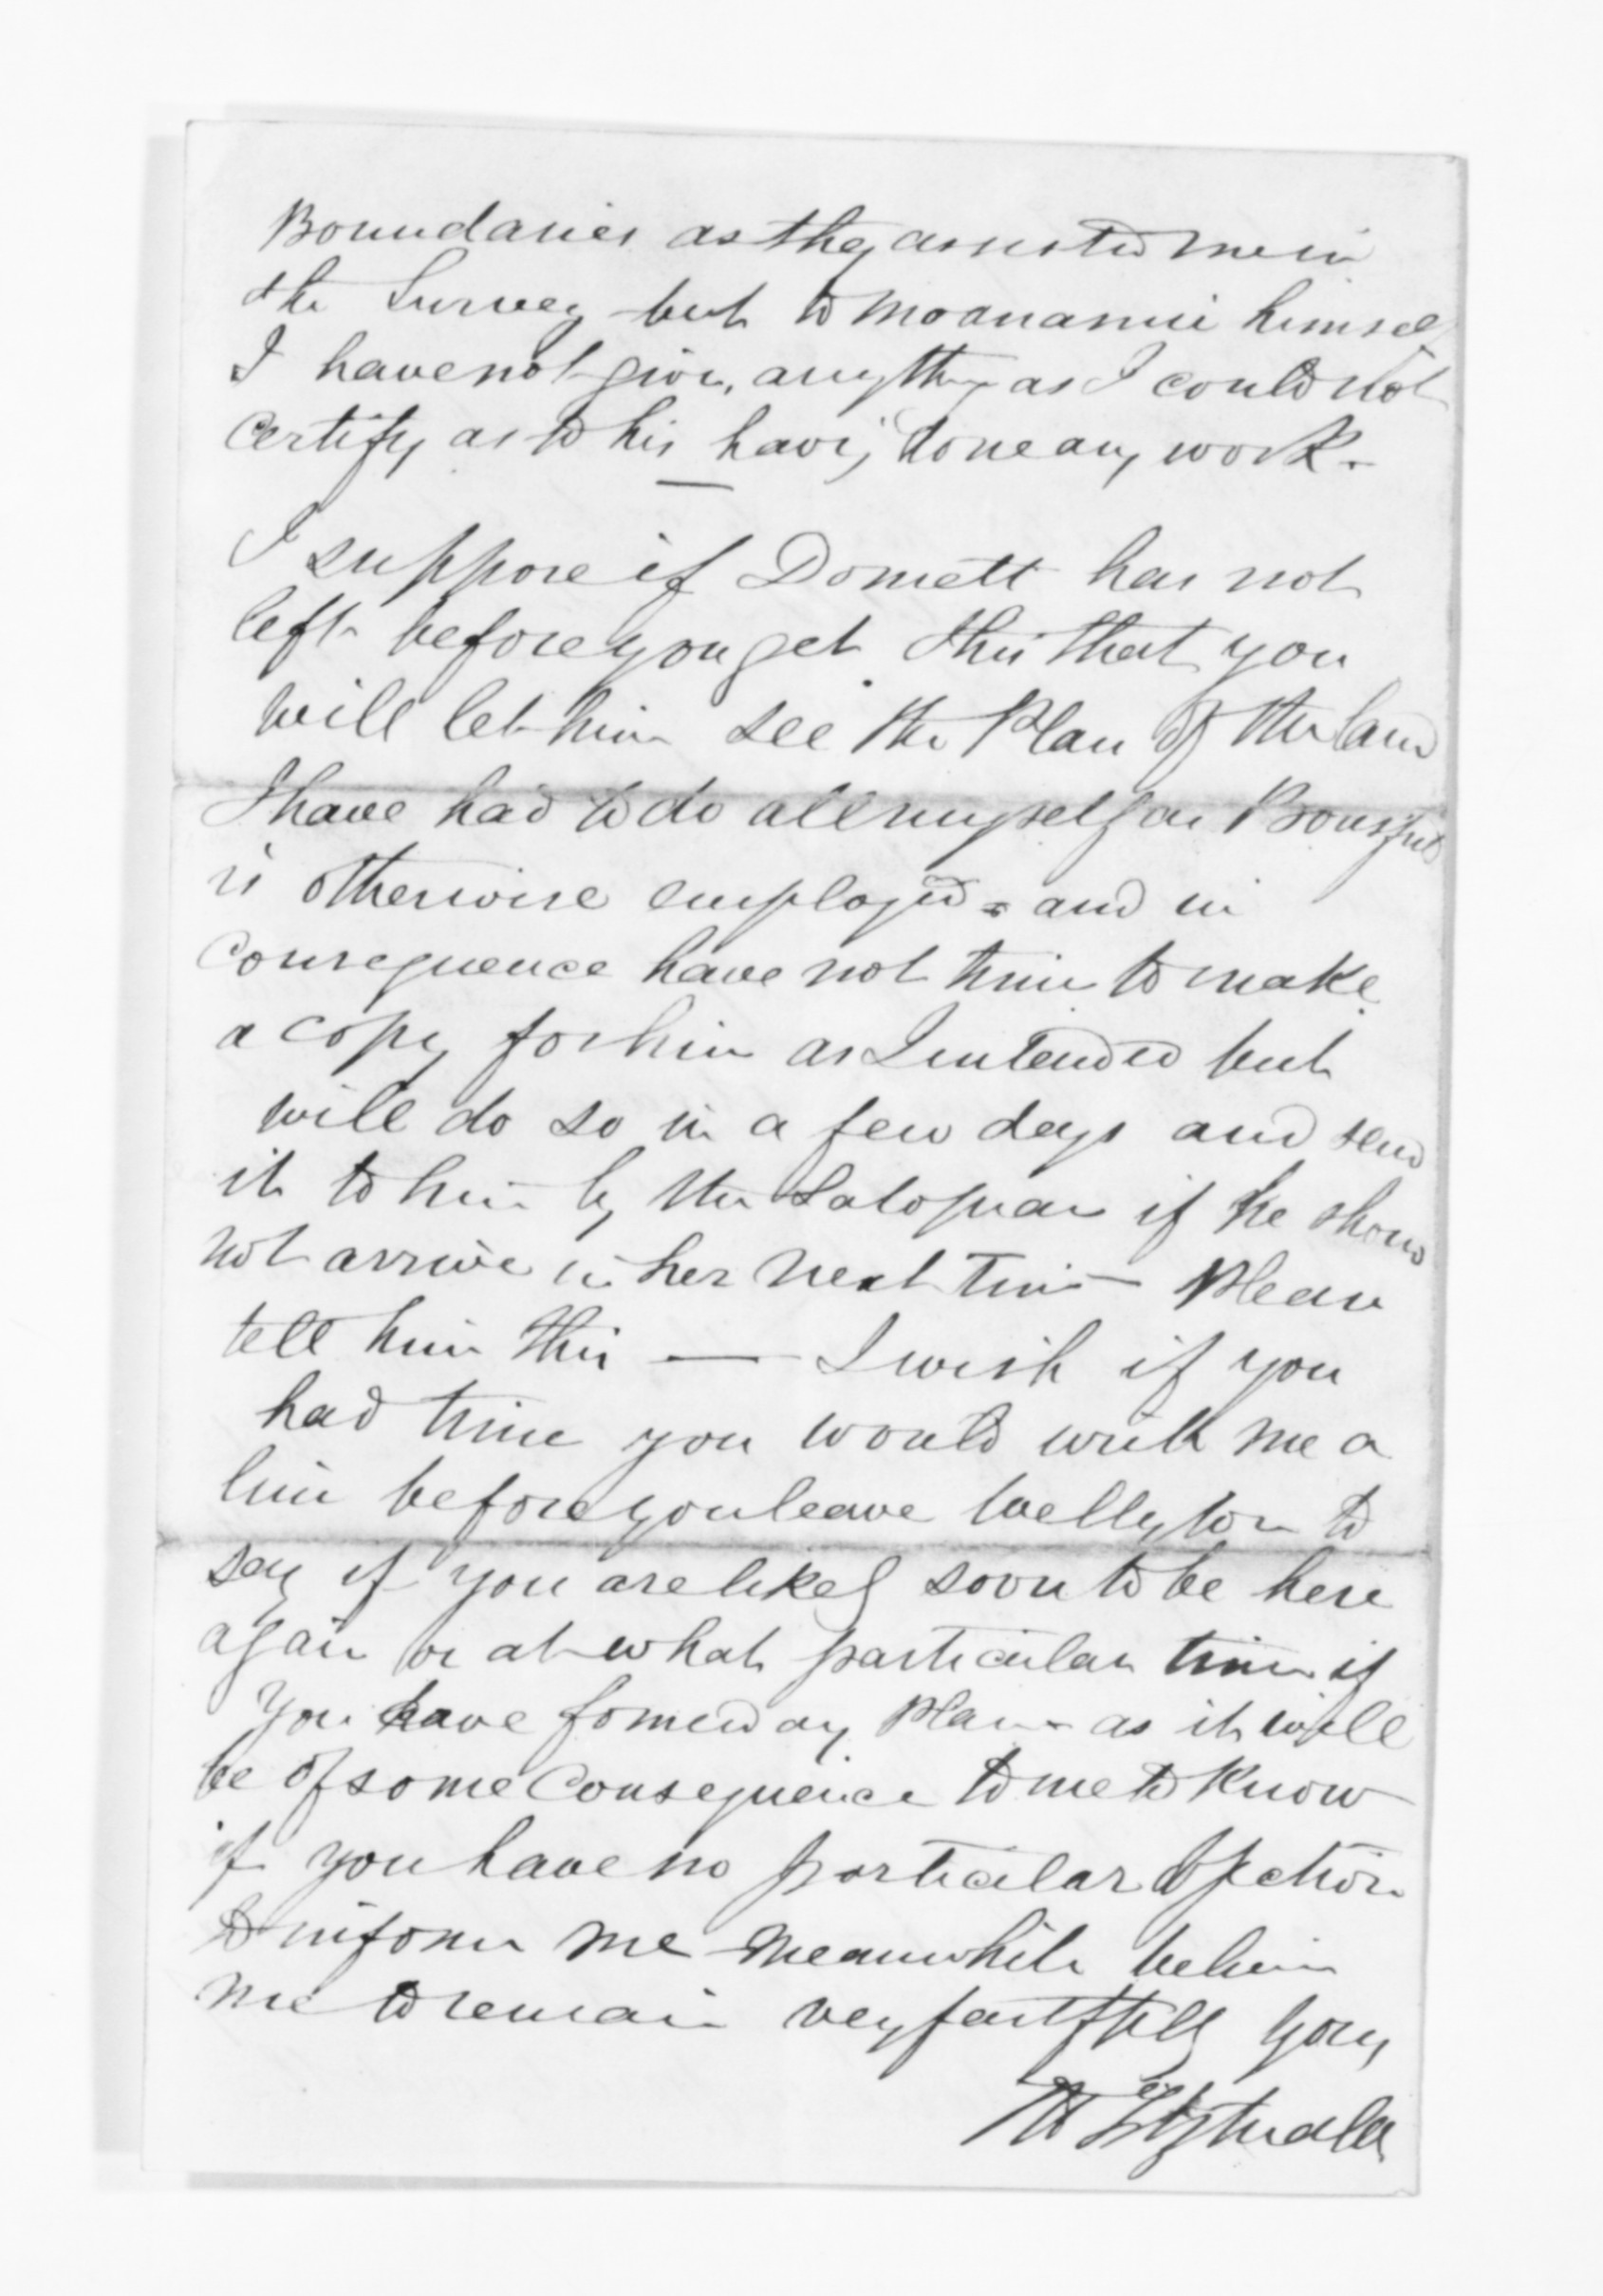 Boundaries as they assisted me in
the Survey but to Moananui himself
I have not given anything as I could not
certify as to his having done any work -
I suppose if Domett has not
left before you get this that you
will let him see the Plan of the land
I have had to do all myself as Bousfield
is otherwise employed - and in
consequence have not time to make
a copy for him as I intended but
will do so in a few days and send
it to him by the Salopian if he should
not arrive in her next time - Please
tell him this — I wish if you
had time you would write me a
line before you leave Wellington to
say if you are likely soon to be here
again or at what particular time if
you have formed any Plan - as it will
be of some consequence to me to know
if you have no particular objection
to inform me meanwhile believe
me to remain very faithfully yours
Fitzgerald